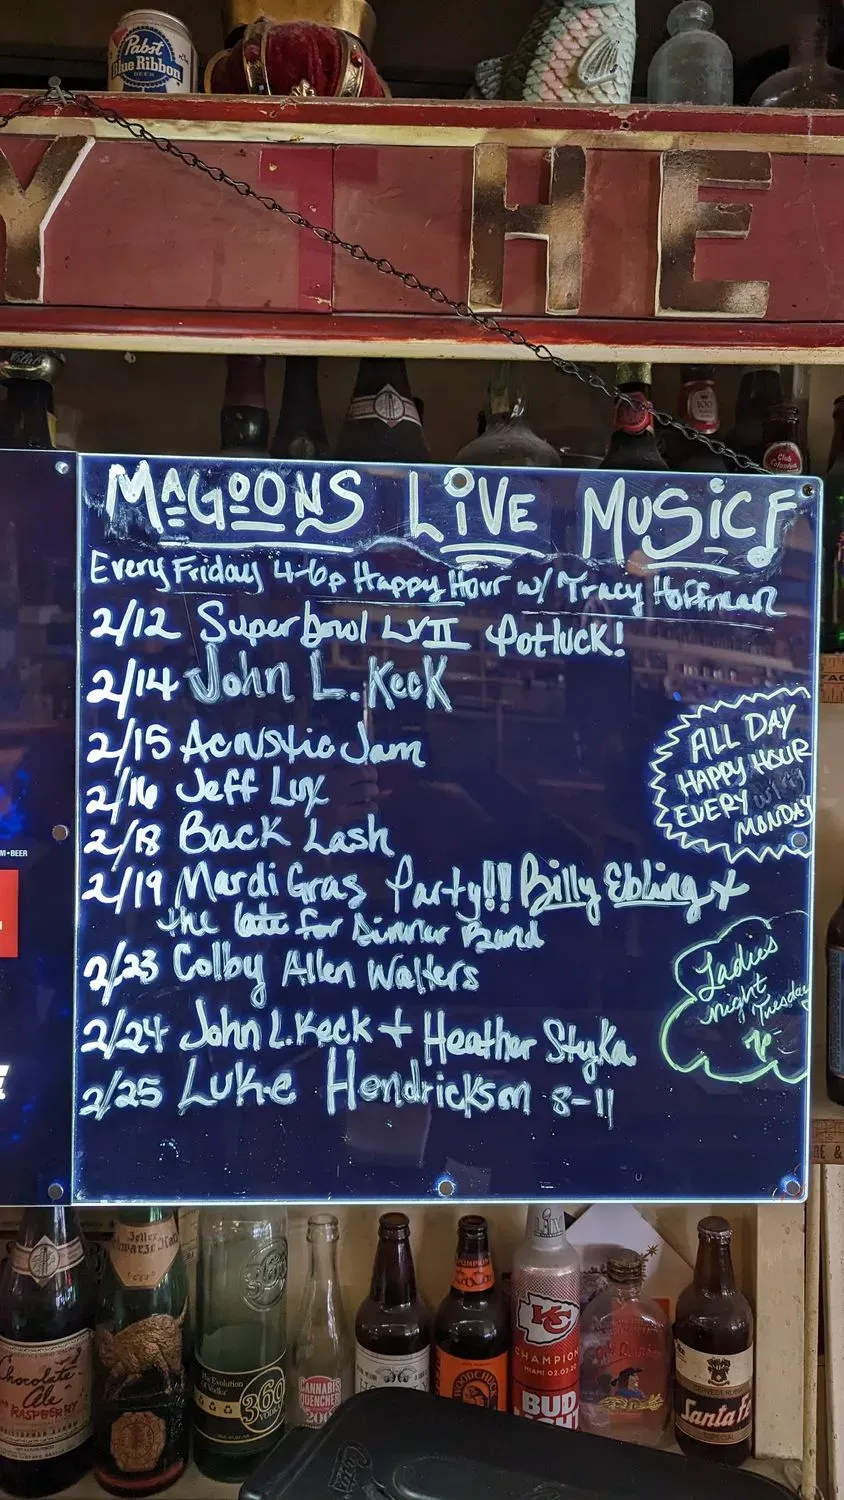 Pabst
Blue Ribbon
BEER
Y T H E
MAGOONS LiVE MUSiC
Every Friday 4-6p Happy Hour w/ Tracy Hoffman
2/12 Superbowl LVII Potluck!
2/14 John L. Keck
2/15 Acoustic Jam
2/16 Jeff Lux
2/18 Back Lash
2/19 Mardi Gras Party!! Billy Ebeling +
the late for Dinner Band
2/23 Colby Allen Walters
2/24 John L. Keck + Heather Styka
2/25 Luke Hendrickson 8-11
ALL DAY
HAPPY HOUR
EVERY
MONDAY
Ladies
night
Tuesday
7p-
M•BEER
Chocolate
Ale
RASPBERRY
The Evolution
Of Vodka
360
VODKA
CANNABIS
QUENCHER
200
WOODCHUCK
KC
CHAMPION
MIAMI 02.02.20
BUD
LIGHT
Santa Fe
ESPECIAL
Club
Colombia